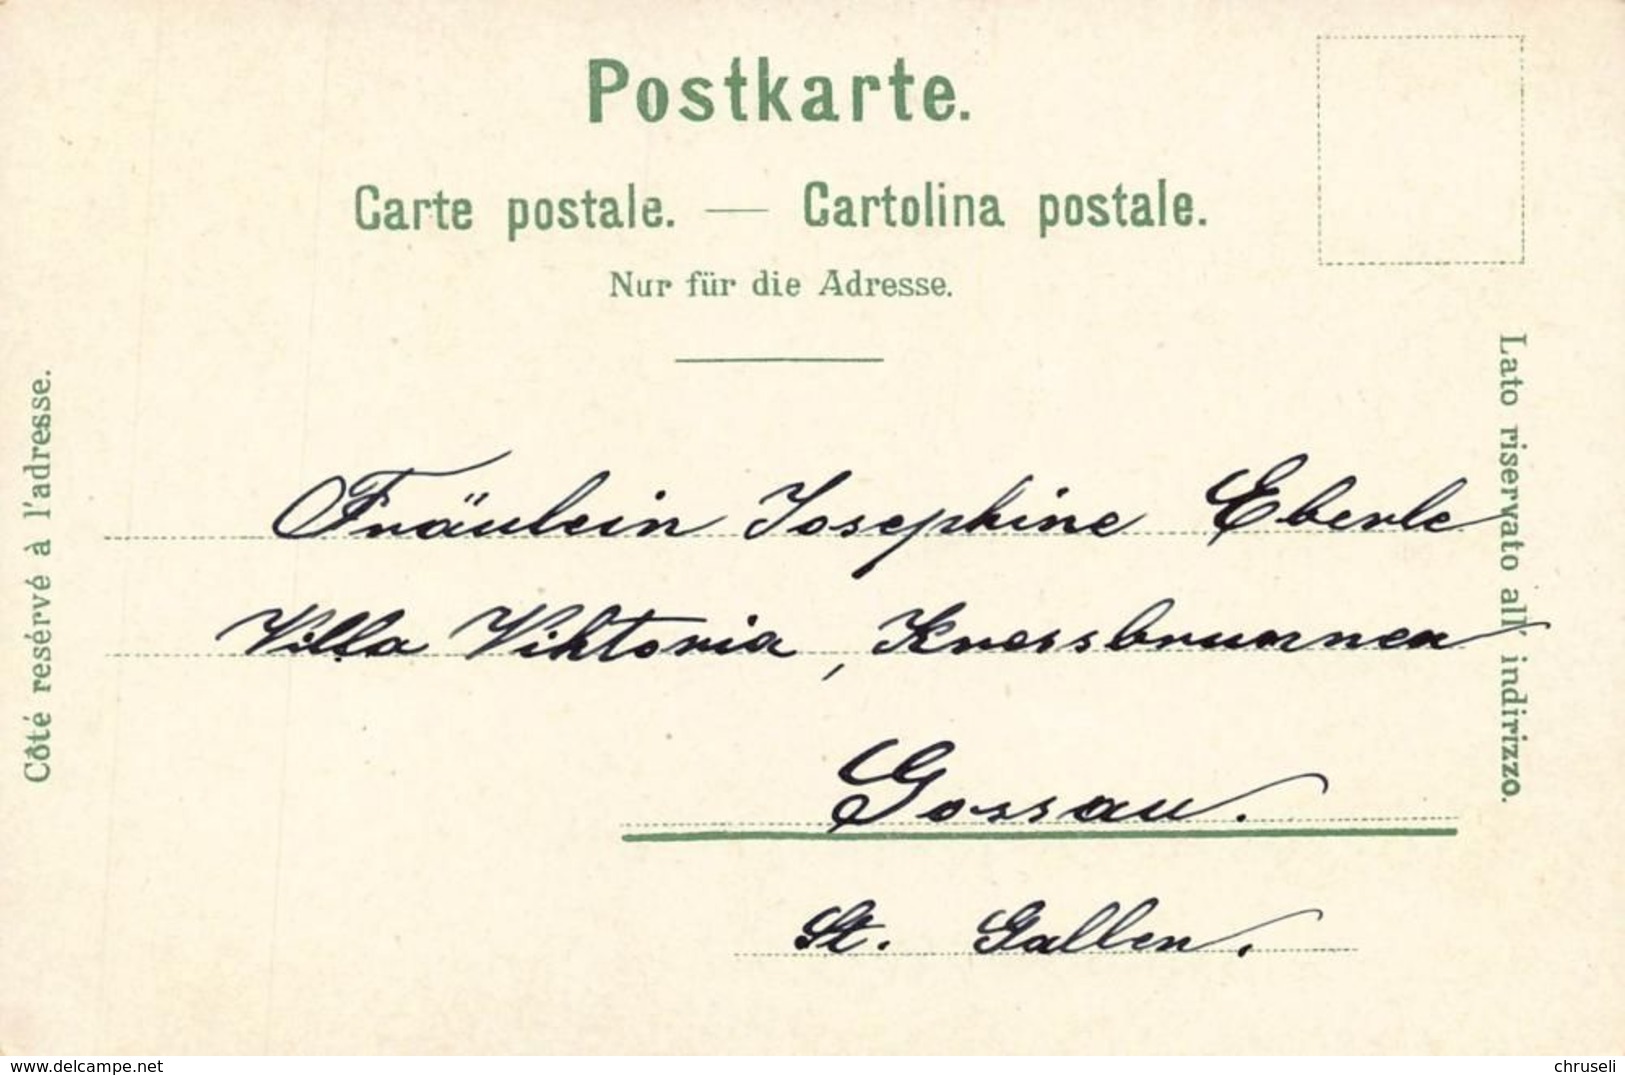 Postkarte.
Carte postale. — Cartolina postale.
Nur für die Adresse.
Côté resérvé à l'adresse.
Lato riservato all' indirizzo.
Fräulein Josephine Eberle
Villa Viktoria,
Gossau.
St. Gallen.
www.delcampe.net
chruseli